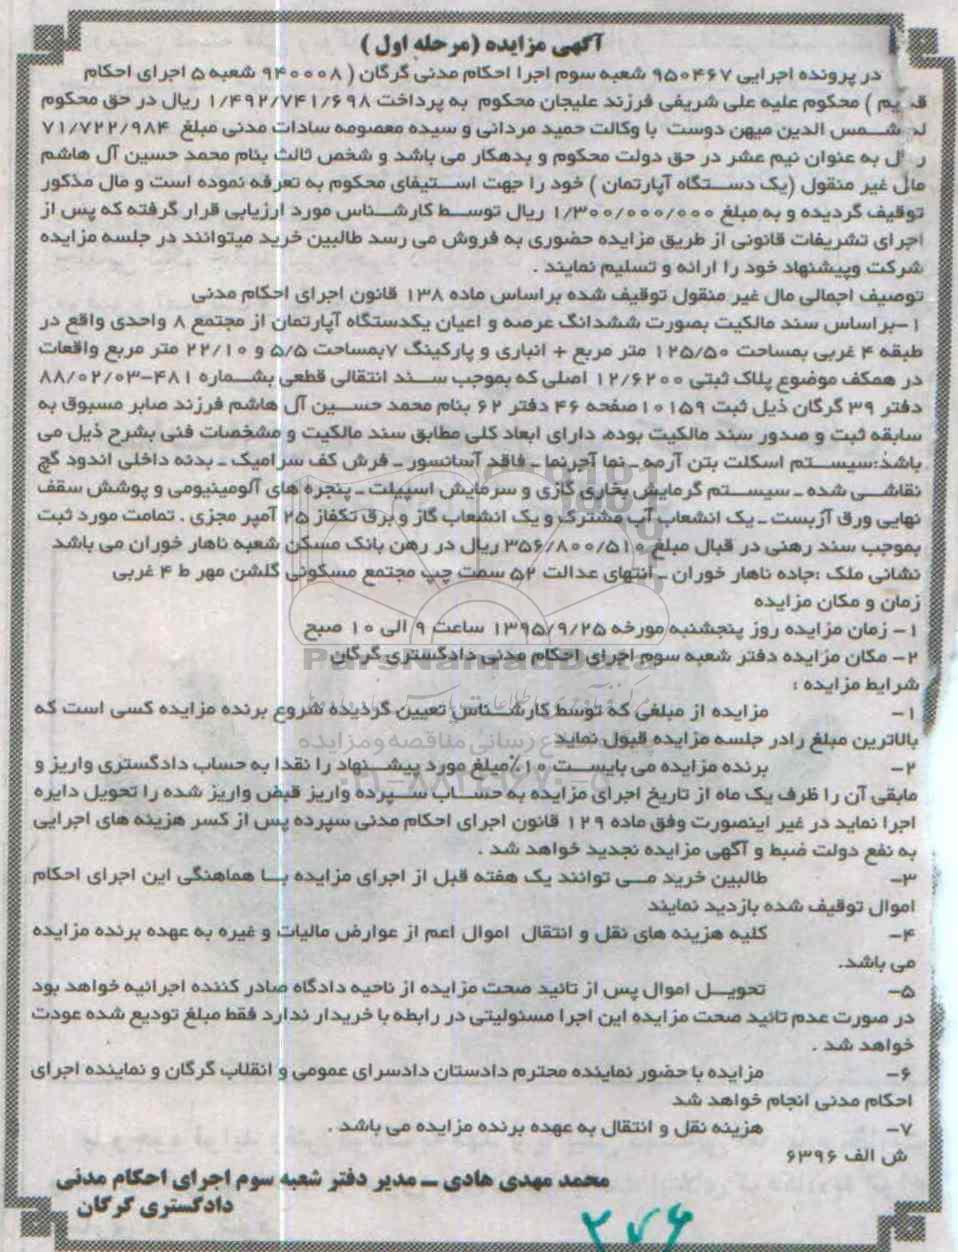 آگهی مزایده (مرحله اول )
در پرونده اجرایی ۹۵۰۴۶۷ شعبه سوم اجرا احکام مدنی گرگان ( ۹۴۰۰۰۸ شعبه ۵ اجرای احکام
قدیم ) محکوم علیه علی شریفی فرزند علیجان محکوم به پرداخت ۱/۴۹۲/۷۴۱/۶۹۸ ریال در حق محکوم
له شمس الدین میهن دوست با وکالت حمید مردانی و سیده معصومه سادات مدنی مبلغ ۷۱/۷۲۲/۹۸۴
ریال به عنوان نیم عشر در حق دولت محکوم و بدهکار می باشد و شخص ثالث بنام محمد حسین آل هاشم
مال غیر منقول (یک دستگاه آپارتمان ) خود را جهت استیفای محکوم به تعرفه نموده است و مال مذکور
توقیف گردیده و به مبلغ ۱/۳۰۰/۰۰۰/۰۰۰ ریال توسط کارشناس مورد ارزیابی قرار گرفته که پس از
اجرای تشریفات قانونی از طریق مزایده حضوری به فروش می رسد طالبین خرید میتوانند در جلسه مزایده
شرکت وپیشنهاد خود را ارائه و تسلیم نمایند .
توصیف اجمالی مال غیر منقول توقیف شده براساس ماده ۱۳۸ قانون اجرای احکام مدنی
۱-براساس سند مالکیت بصورت ششدانگ عرصه و اعیان یکدستگاه آپارتمان از مجتمع ۸ واحدی واقع در
طبقه ۴ غربی بمساحت ۱۲۵/۵۰ متر مربع + انباری و پارکینگ ۷بمساحت ۵/۵ و ۲۲/۱۰ متر مربع واقعات
در همکف موضوع پلاک ثبتی ۱۲/۶۲۰۰ اصلی که بموجب سند انتقالی قطعی بشماره ۴۸۱-۸۸/۰۲/۰۳
دفتر ۳۹ گرگان ذیل ثبت ۱۰۱۵۹صفحه ۴۶ دفتر ۶۲ بنام محمد حسین آل هاشم فرزند صابر مسبوق به
سابقه ثبت و صدور سند مالکیت بوده، دارای ابعاد کلی مطابق سند مالکیت و مشخصات فنی بشرح ذیل می
باشد:سیستم اسکلت بتن آرمه ـ نما آجرنما ـ فاقد آسانسور ـ فرش کف سرامیک ـ بدنه داخلی اندود گچ
نقاشی شده ـ سیستم گرمایش بخاری گازی و سرمایش اسپیلت ـ پنجره های آلومینیومی و پوشش سقف
نهایی ورق آزبست ـ یک انشعاب آب مشترک و یک انشعاب گاز و برق تکفاز ۲۵ آمپر مجزی . تمامت مورد ثبت
بموجب سند رهنی در قبال مبلغ ۳۵۶/۸۰۰/۵۱۰ ریال در رهن بانک مسکن شعبه ناهار خوران می باشد
نشانی ملک :جاده ناهار خوران ـ انتهای عدالت ۵۲ سمت چپ مجتمع مسکونی گلشن مهر ط ۴ غربی
زمان و مکان مزایده
۱- زمان مزایده روز پنجشنبه مورخه ۱۳۹۵/۹/۲۵ ساعت ۹ الی ۱۰ صبح
۲- مکان مزایده دفتر شعبه سوم اجرای احکام مدنی دادگستری گرگان
شرایط مزایده :
۱- مزایده از مبلغی که توسط کارشناس تعیین گردیده شروع برنده مزایده کسی است که
بالاترین مبلغ رادر جلسه مزایده قبول نماید
۲- برنده مزایده می بایست ۱۰٪مبلغ مورد پیشنهاد را نقدا به حساب دادگستری واریز و
مابقی آن را ظرف یک ماه از تاریخ اجرای مزایده به حساب سپرده واریز قبض واریز شده را تحویل دایره
اجرا نماید در غیر اینصورت وفق ماده ۱۲۹ قانون اجرای احکام مدنی سپرده پس از کسر هزینه های اجرایی
به نفع دولت ضبط و آگهی مزایده تجدید خواهد شد .
۳- طالبین خرید می توانند یک هفته قبل از اجرای مزایده با هماهنگی این اجرای احکام
اموال توقیف شده بازدید نمایند
۴- کلیه هزینه های نقل و انتقال اموال اعم از عوارض مالیات و غیره به عهده برنده مزایده
می باشد.
۵- تحویل اموال پس از تائید صحت مزایده از ناحیه دادگاه صادر کننده اجرائیه خواهد بود
در صورت عدم تائید صحت مزایده این اجرا مسئولیتی در رابطه با خریدار ندارد فقط مبلغ تودیع شده عودت
خواهد شد .
۶- مزایده با حضور نماینده محترم دادستان دادسرای عمومی و انقلاب گرگان و نماینده اجرای
احکام مدنی انجام خواهد شد
۷- هزینه نقل و انتقال به عهده برنده مزایده می باشد .
ش الف ۶۳۹۶
محمد مهدی هادی ــ مدیر دفتر شعبه سوم اجرای احکام مدنی
دادگستری گرگان
۲۷۶